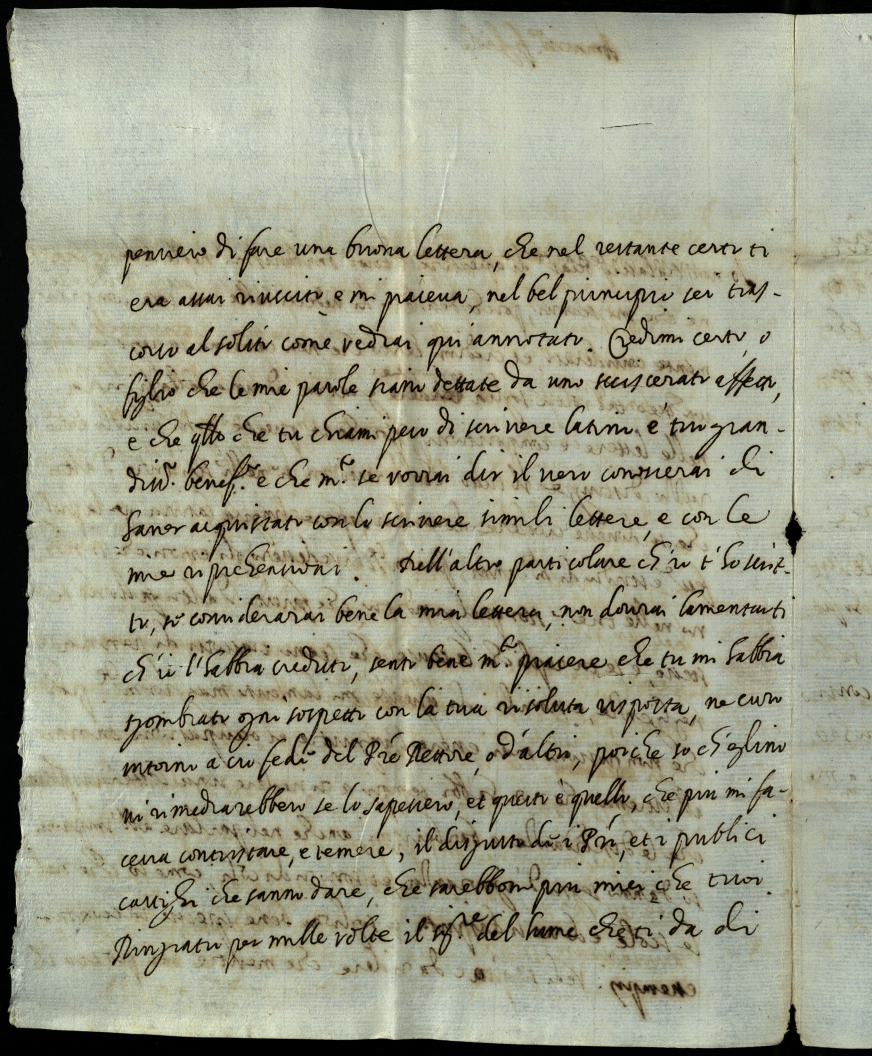 pensiero di fare una buona lettera, che nel restante certo ti
era assai riuscito e mi piaceva, nel bel principio sei tras-
corso al solito come vedrai qui annotato. Credimi certo, o
figlio che le mie parole siano dettate da uno sviscerato affetto,
e che qllo che tu chiami peso di scrivere latino è tuo gran-
diss.º benef.º e che m.º se vorrai dir il vero conoscerai di
haver acquistato con lo scrivere simili lettere, e con le
mie riprehensioni. Dell'altro particolare ch'io t'ho scrit-
to, se considerarai bene la mia lettera, non dovrai lamentarti
ch'io l'habbia creduto, sento bene m.º piacere che tu mi habbia
sgombrato ogni sospetto con la tua risoluta risposta, ne curo
intorno a ciò fede del Pre Rettore, o d'altri, poiche so ch'eglino
vi rimediarebbero se lo sapessero, et questo è quello, che più mi fa-
ceva contristare, e temere, il disgusto de i Pri, et i publici
castighi che sanno dare, che sarebbono più miei che tuoi.
Ringratio per mille volte il Sig.re del lume che ti da di